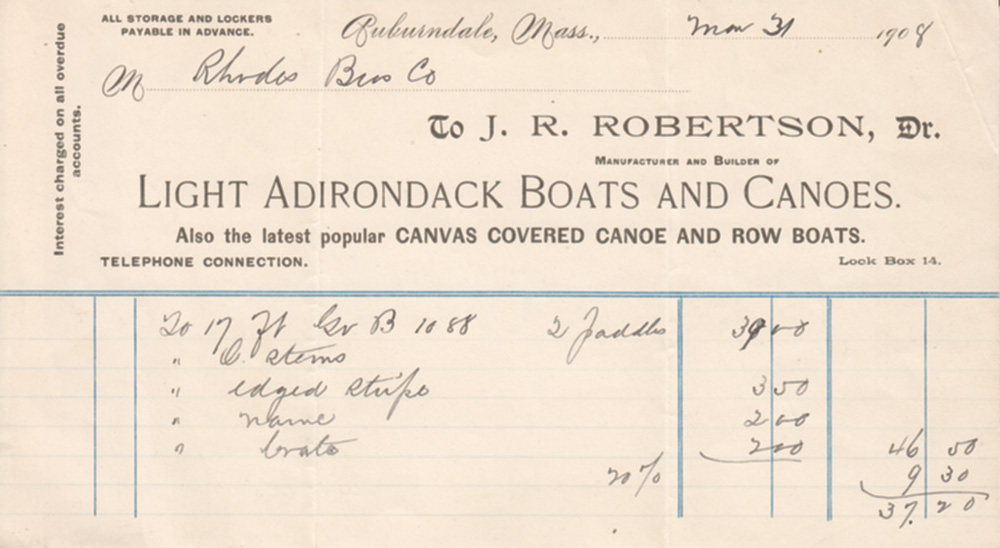 ALL STORAGE AND LOCKERS
PAYABLE IN ADVANCE.
Interest charged on all overdue
accounts.
Auburndale, Mass., Mar 31 1908
M Rhodes Bros Co
To J. R. ROBERTSON, Dr.
MANUFACTURER AND BUILDER OF
LIGHT ADIRONDACK BOATS AND CANOES.
Also the latest popular CANVAS COVERED CANOE AND ROW BOATS.
TELEPHONE CONNECTION. Lock Box 14.
To 17 Ft Gr B 1088 2 paddles 39 00
" stems
" edged stripe 3 50
" name 2 00
" crate 2 00 46 50
20% 9 30
37. 20